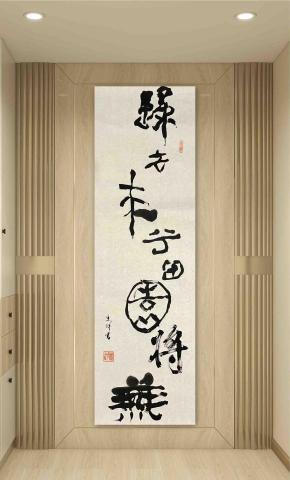 歸去来兮田園將蕪